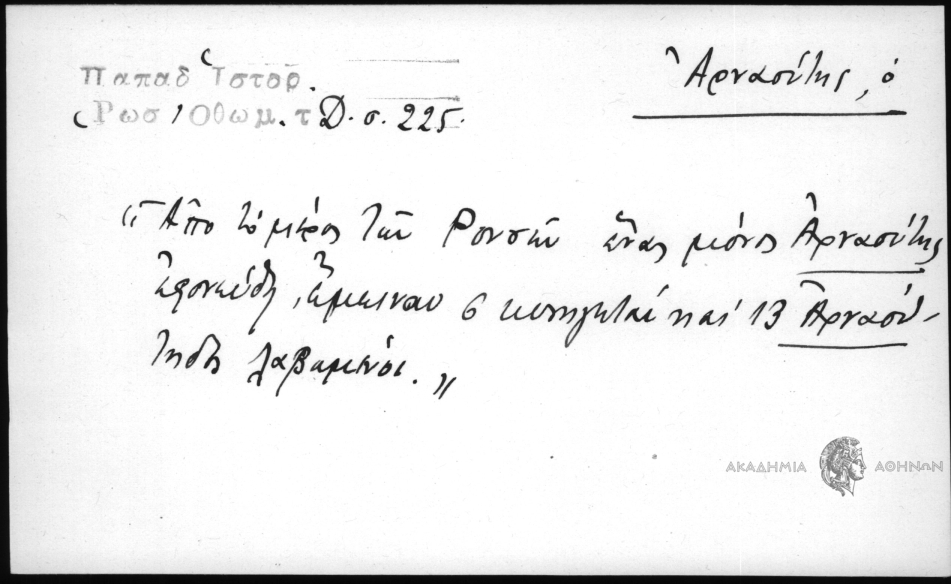 Παπαδ Ἱστορ.
Ρωσ Ὀθωμ. τ. Δ. σ. 225.
Ἀρναούτης, ὁ
"Ἀπὸ τὸ μέρος τῶν Ρουσῶν ἕνας μόνος Ἀρναούτης
ἐφονεύθη, ἔμειναν 6 κυνηγηταί καὶ 13 Ἀρναού-
τηδες λαβωμένοι."
ΑΚΑΔΗΜΙΑ ΑΘΗΝΩΝ